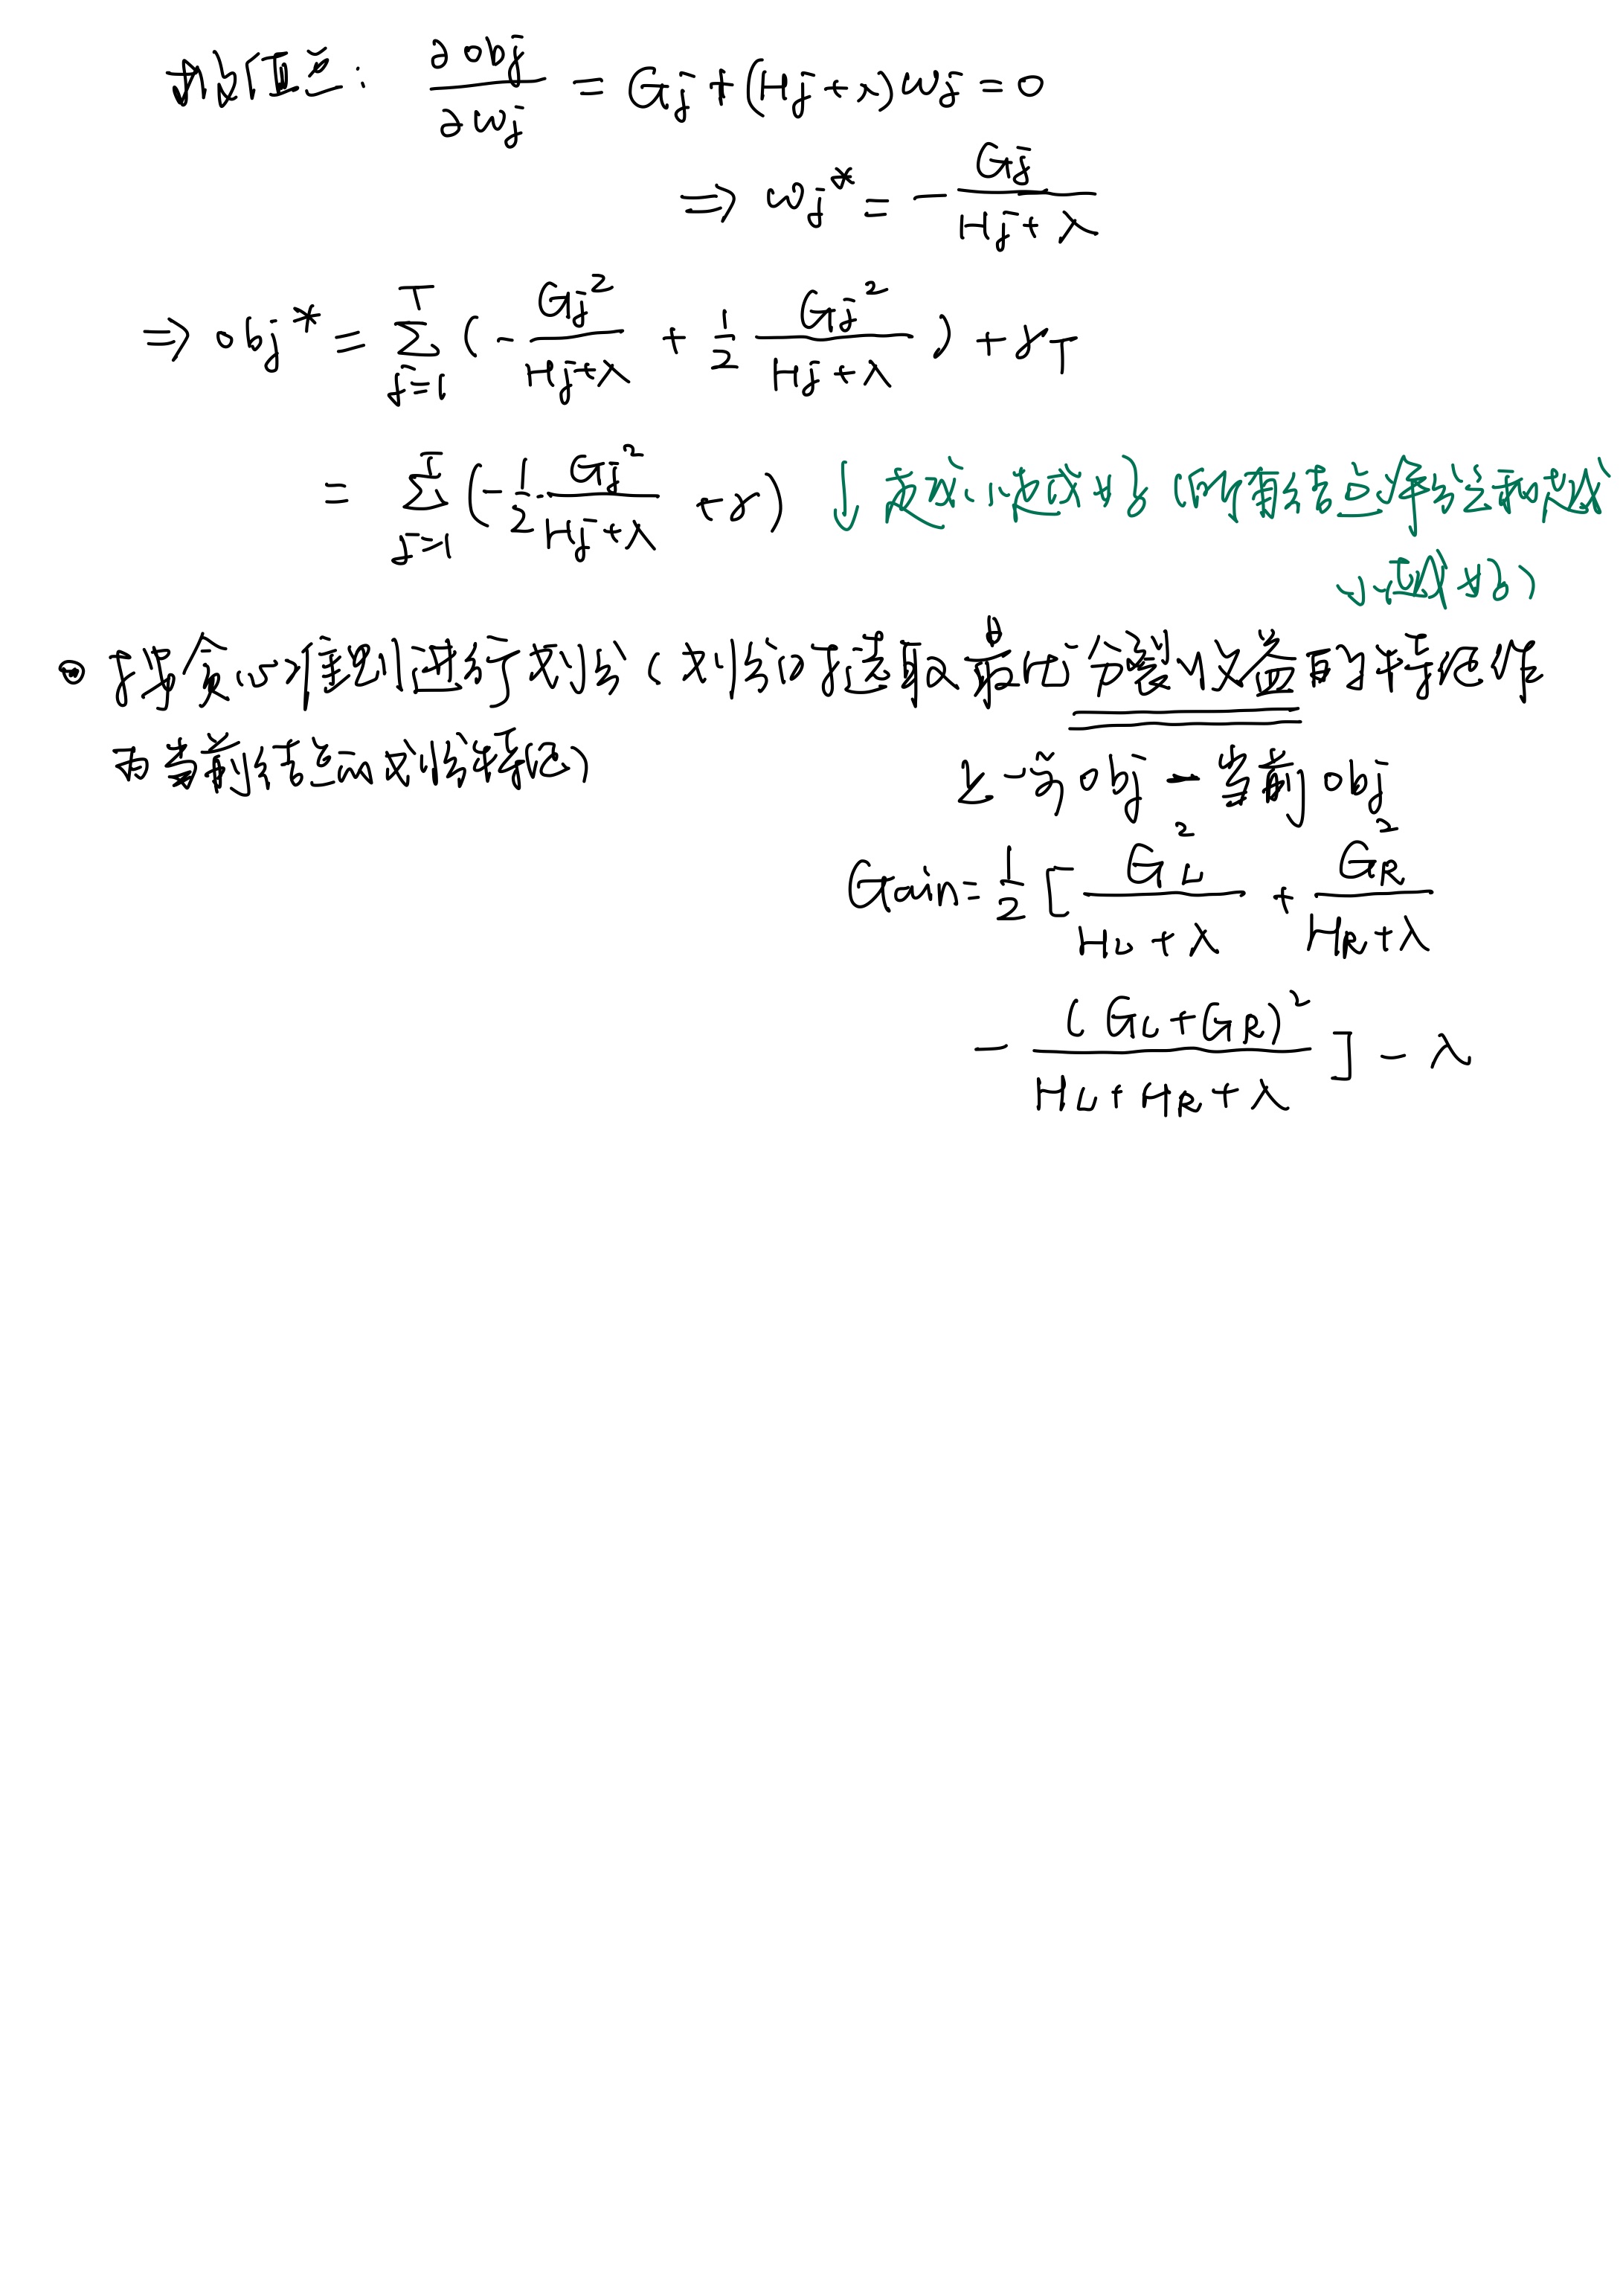 故顶点: ∂obj/∂wⱼ = Gⱼ + (Hⱼ + λ) wⱼ = 0
⇒ wⱼ* = - Gⱼ / (Hⱼ + λ)
⇒ obj* = Σⱼ₌₁ᵀ ( - Gⱼ² / (Hⱼ + λ) + 1/2 Gⱼ² / (Hⱼ + λ) ) + γT
= Σⱼ₌₁ᵀ ( - 1/2 · Gⱼ² / (Hⱼ + λ) + γ ) ↓ 越小越好 (所有结点 和越
小越好)
· 找贪心准则进行划分 (划分时选取最大化分裂收益的特征作
为当前结点的划分特征)
上一步obj - 当前obj
Gain = 1/2 [ G_L² / (H_L + λ) + G_R² / (H_R + λ)
- (G_L + G_R)² / (H_L + H_R + λ) ] - λ